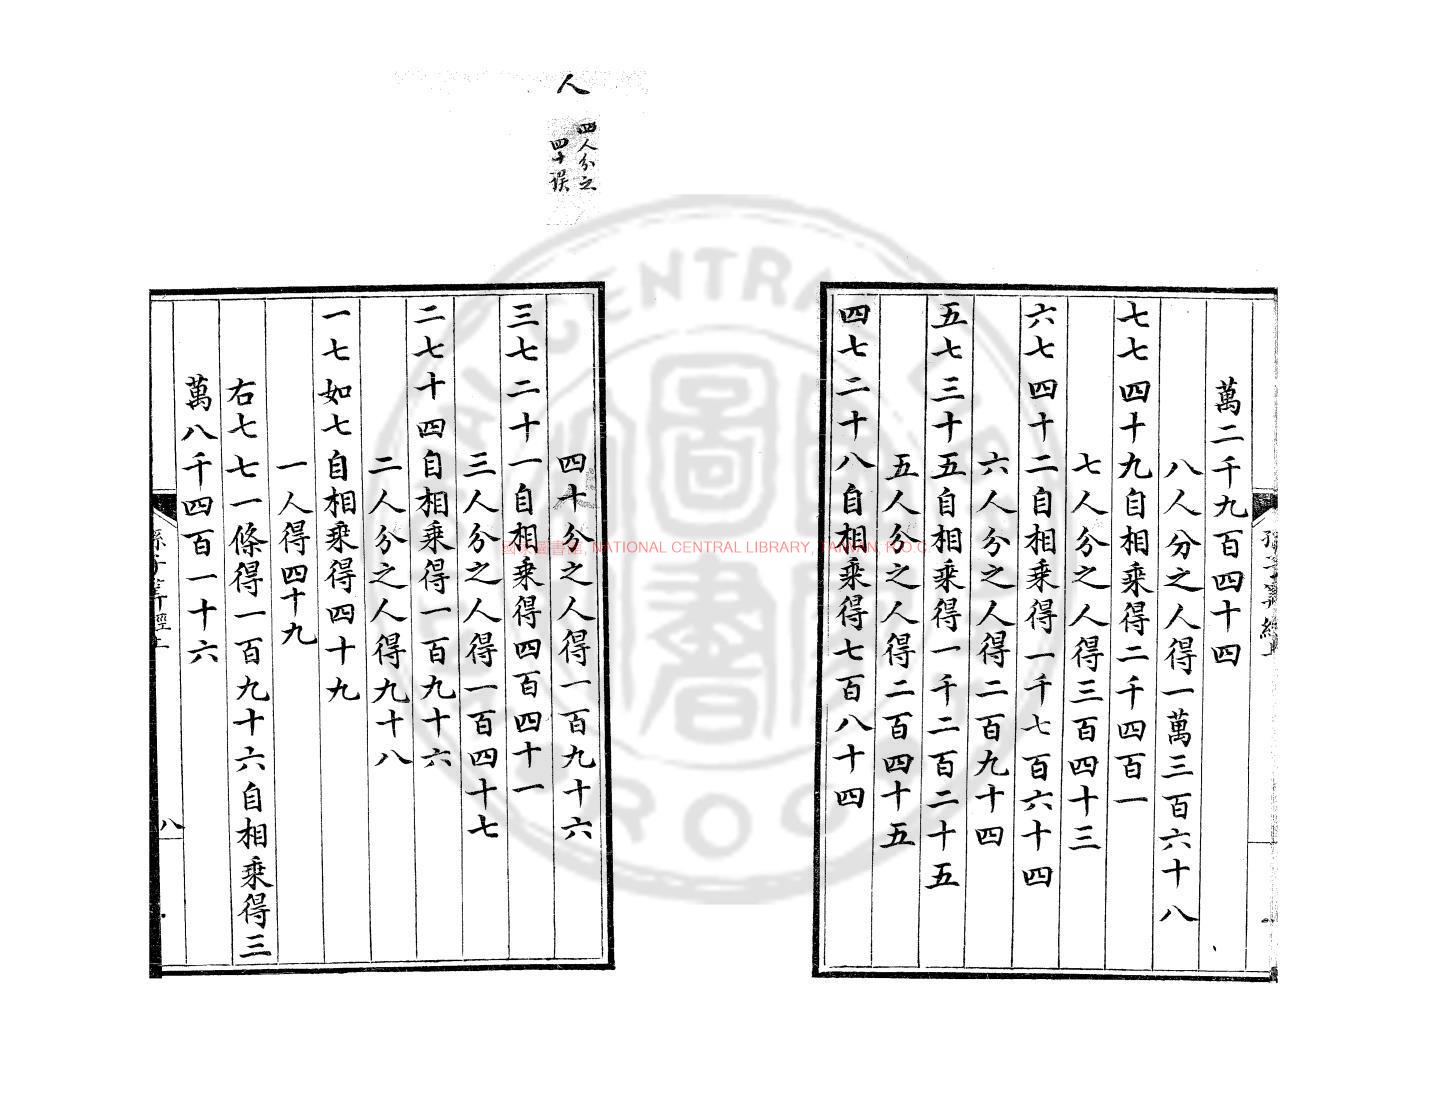 萬二千九百四十四
八人分之人得一萬三百六十八
七七四十九自相乘得二千四百一
七人分之人得三百四十三
六七四十二自相乘得一千七百六十四
六人分之人得二百九十四
五七三十五自相乘得一千二百二十五
五人分之人得二百四十五
四七二十八自相乘得七百八十四
人
四人分之
四十誤
四十分之人得一百九十六
三七二十一自相乘得四百四十一
三人分之人得一百四十七
二七十四自相乘得一百九十六
二人分之人得九十八
一七如七自相乘得四十九
一人得四十九
右七七一條得一百九十六自相乘得三
萬八千四百一十六
孫子算經上
八
國家圖書館, NATIONAL CENTRAL LIBRARY, TAIWAN, R.O.C.